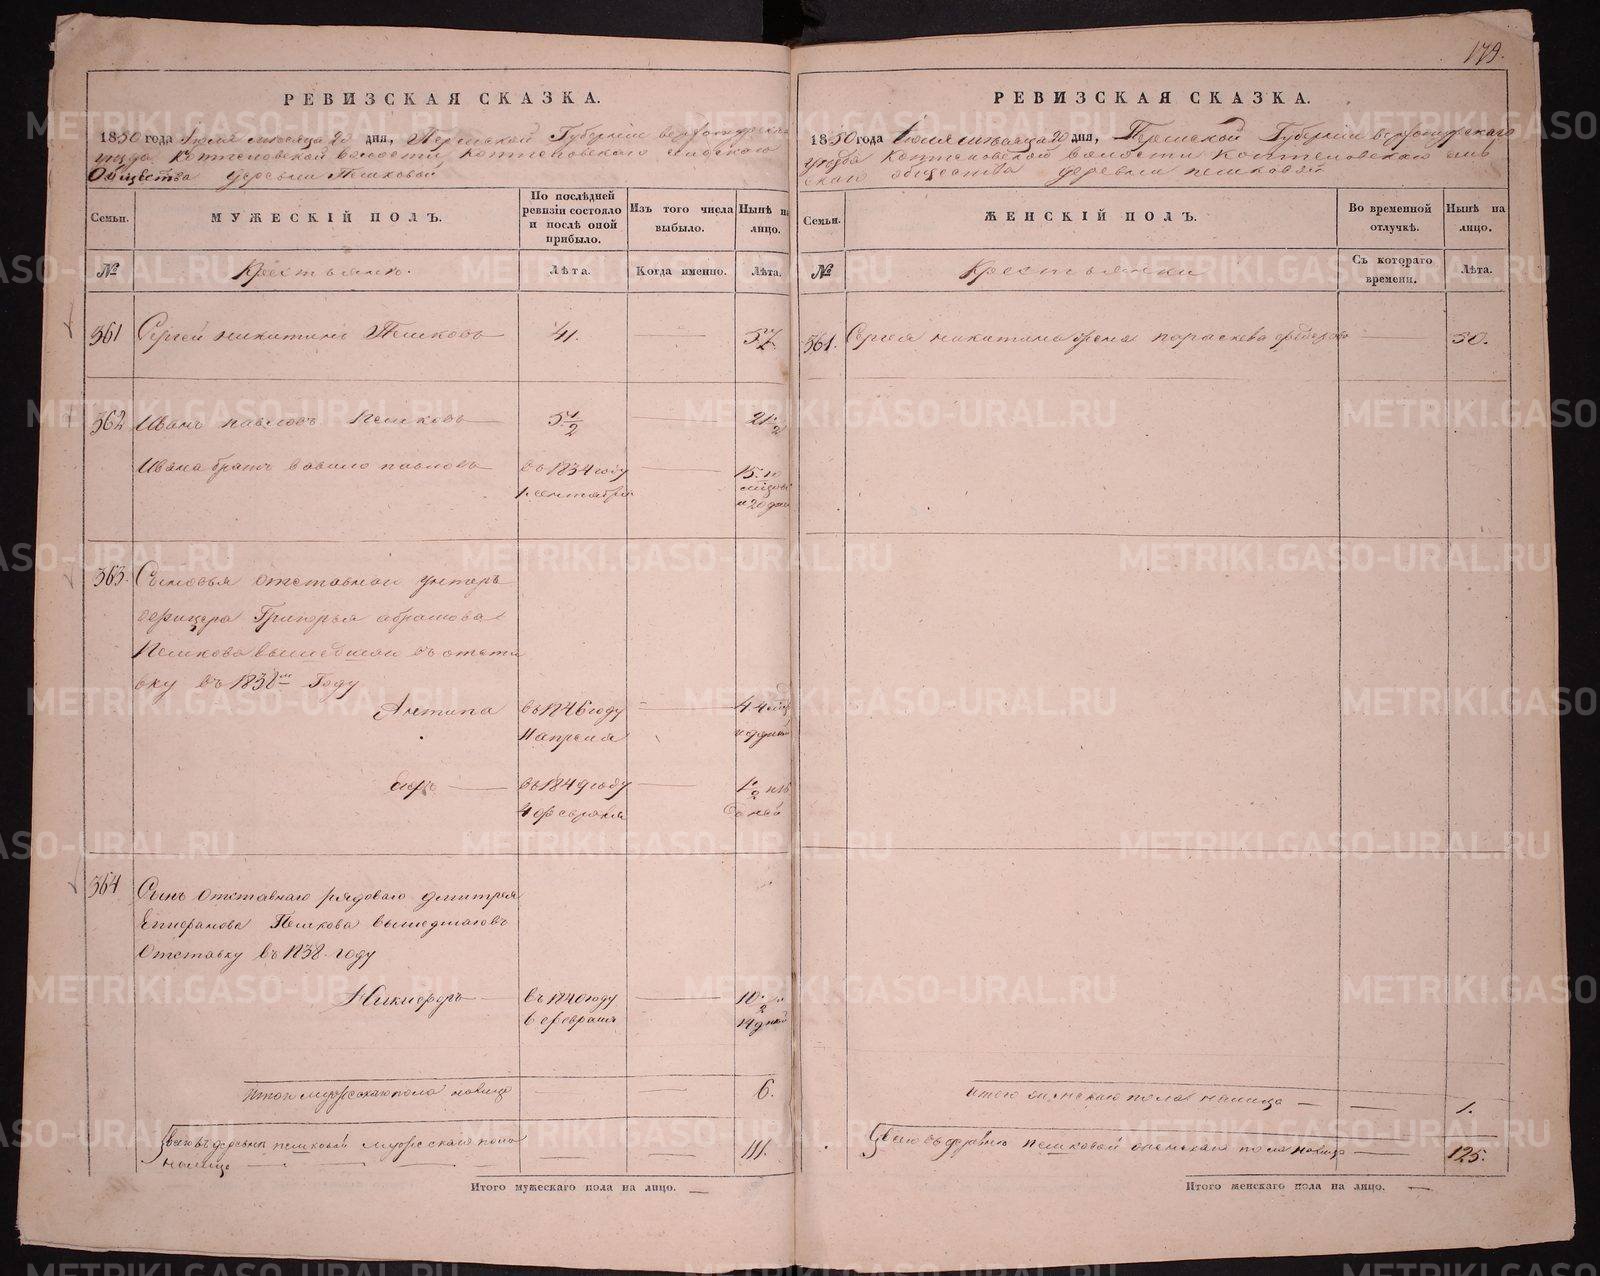 179.
РЕВИЗСКАЯ СКАЗКА.
1850 года Июля месяца 20 дня, Пермской Губернии верхотурскаго
уезда Коптеловской волости, Коптеловскаго сельскаго
Общества деревни Пешковой
Семьи.
МУЖЕСКІЙ ПОЛЪ.
По послѣдней ревизіи состояло и послѣ оной прибыло.
Изъ того числа выбыло.
Нынѣ на лицо.
№
Крестьянъ.
Лѣта.
Когда именно.
Лѣта.
361 Сергей никитинъ Пешковъ 41.
362 Иванъ павловъ Пешковъ 5 1/2 21 1/2
Ивана братъ вавило павловъ въ 1834 году 15. 10
1. сентября месяцов
и 20 дней
363. Сыновья отставнаго унтеръ
офицера Григорья абрамова
Пешкова вышедшаго въ отста
вку въ 1838м Году
Антипа въ 1846 году 4
11 апреля
въ 1849 году 1
4 февраля дней
364 Сынъ отставнаго рядоваго дмитрея
Епифанова Пешкова вышедшаго въ
Отставку въ 1838 году
Никифоръ въ 1840 году 10
6 февраля 14 дней
Итого мужескаго пола налицо 6.
Всего въ деревни пешковый мужескаго пола 111.
налицо
Итого мужескаго пола на лицо.
РЕВИЗСКАЯ СКАЗКА.
1850 года Июля месяца 20 дня, Пермской Губернии верхотурскаго
уезда Коптеловской волости Коптеловскаго сель
скаго общества деревни пешковой
Семьи.
ЖЕНСКІЙ ПОЛЪ.
Во временной отлучкѣ.
Нынѣ на лицо.
№
Крестьянки
Съ котораго времени.
Лѣта.
361. Сергея никитина жена параскева 50.
Итого женскаго пола налицо 1.
Всего въ деревню пешковой женскаго пола налицо 125.
Итого женскаго пола на лицо.
METRIKI.GASO-URAL.RU